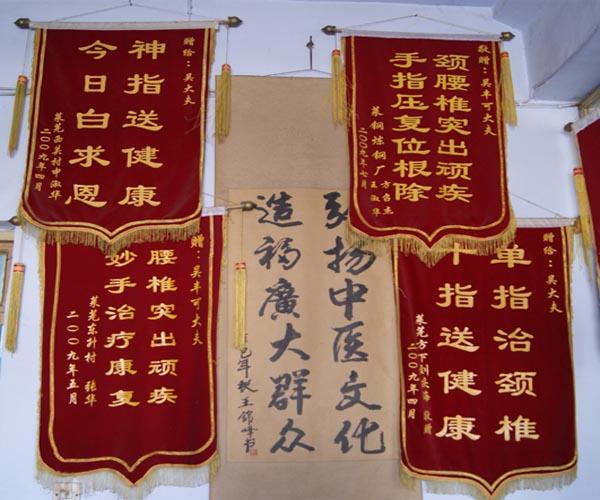 赠给：吴大夫
神指送健康
今日白求恩
莱芜西关村申淑华
二00九年四月
敬赠：吴丰可大夫
颈腰椎突出顽疾
手指压复位根除
莱钢炼钢厂
方台杰
王淑华
二00九年七月
赠：吴丰可大夫
腰椎突出顽疾
妙手治疗康复
莱芜东升村 张华
二00九年五月
弘扬中医文化
造福廣大群众
王錦峰书
赠给：吴大夫
单指治颈椎
十指送健康
莱芜方下
敬赠
二00九年四月